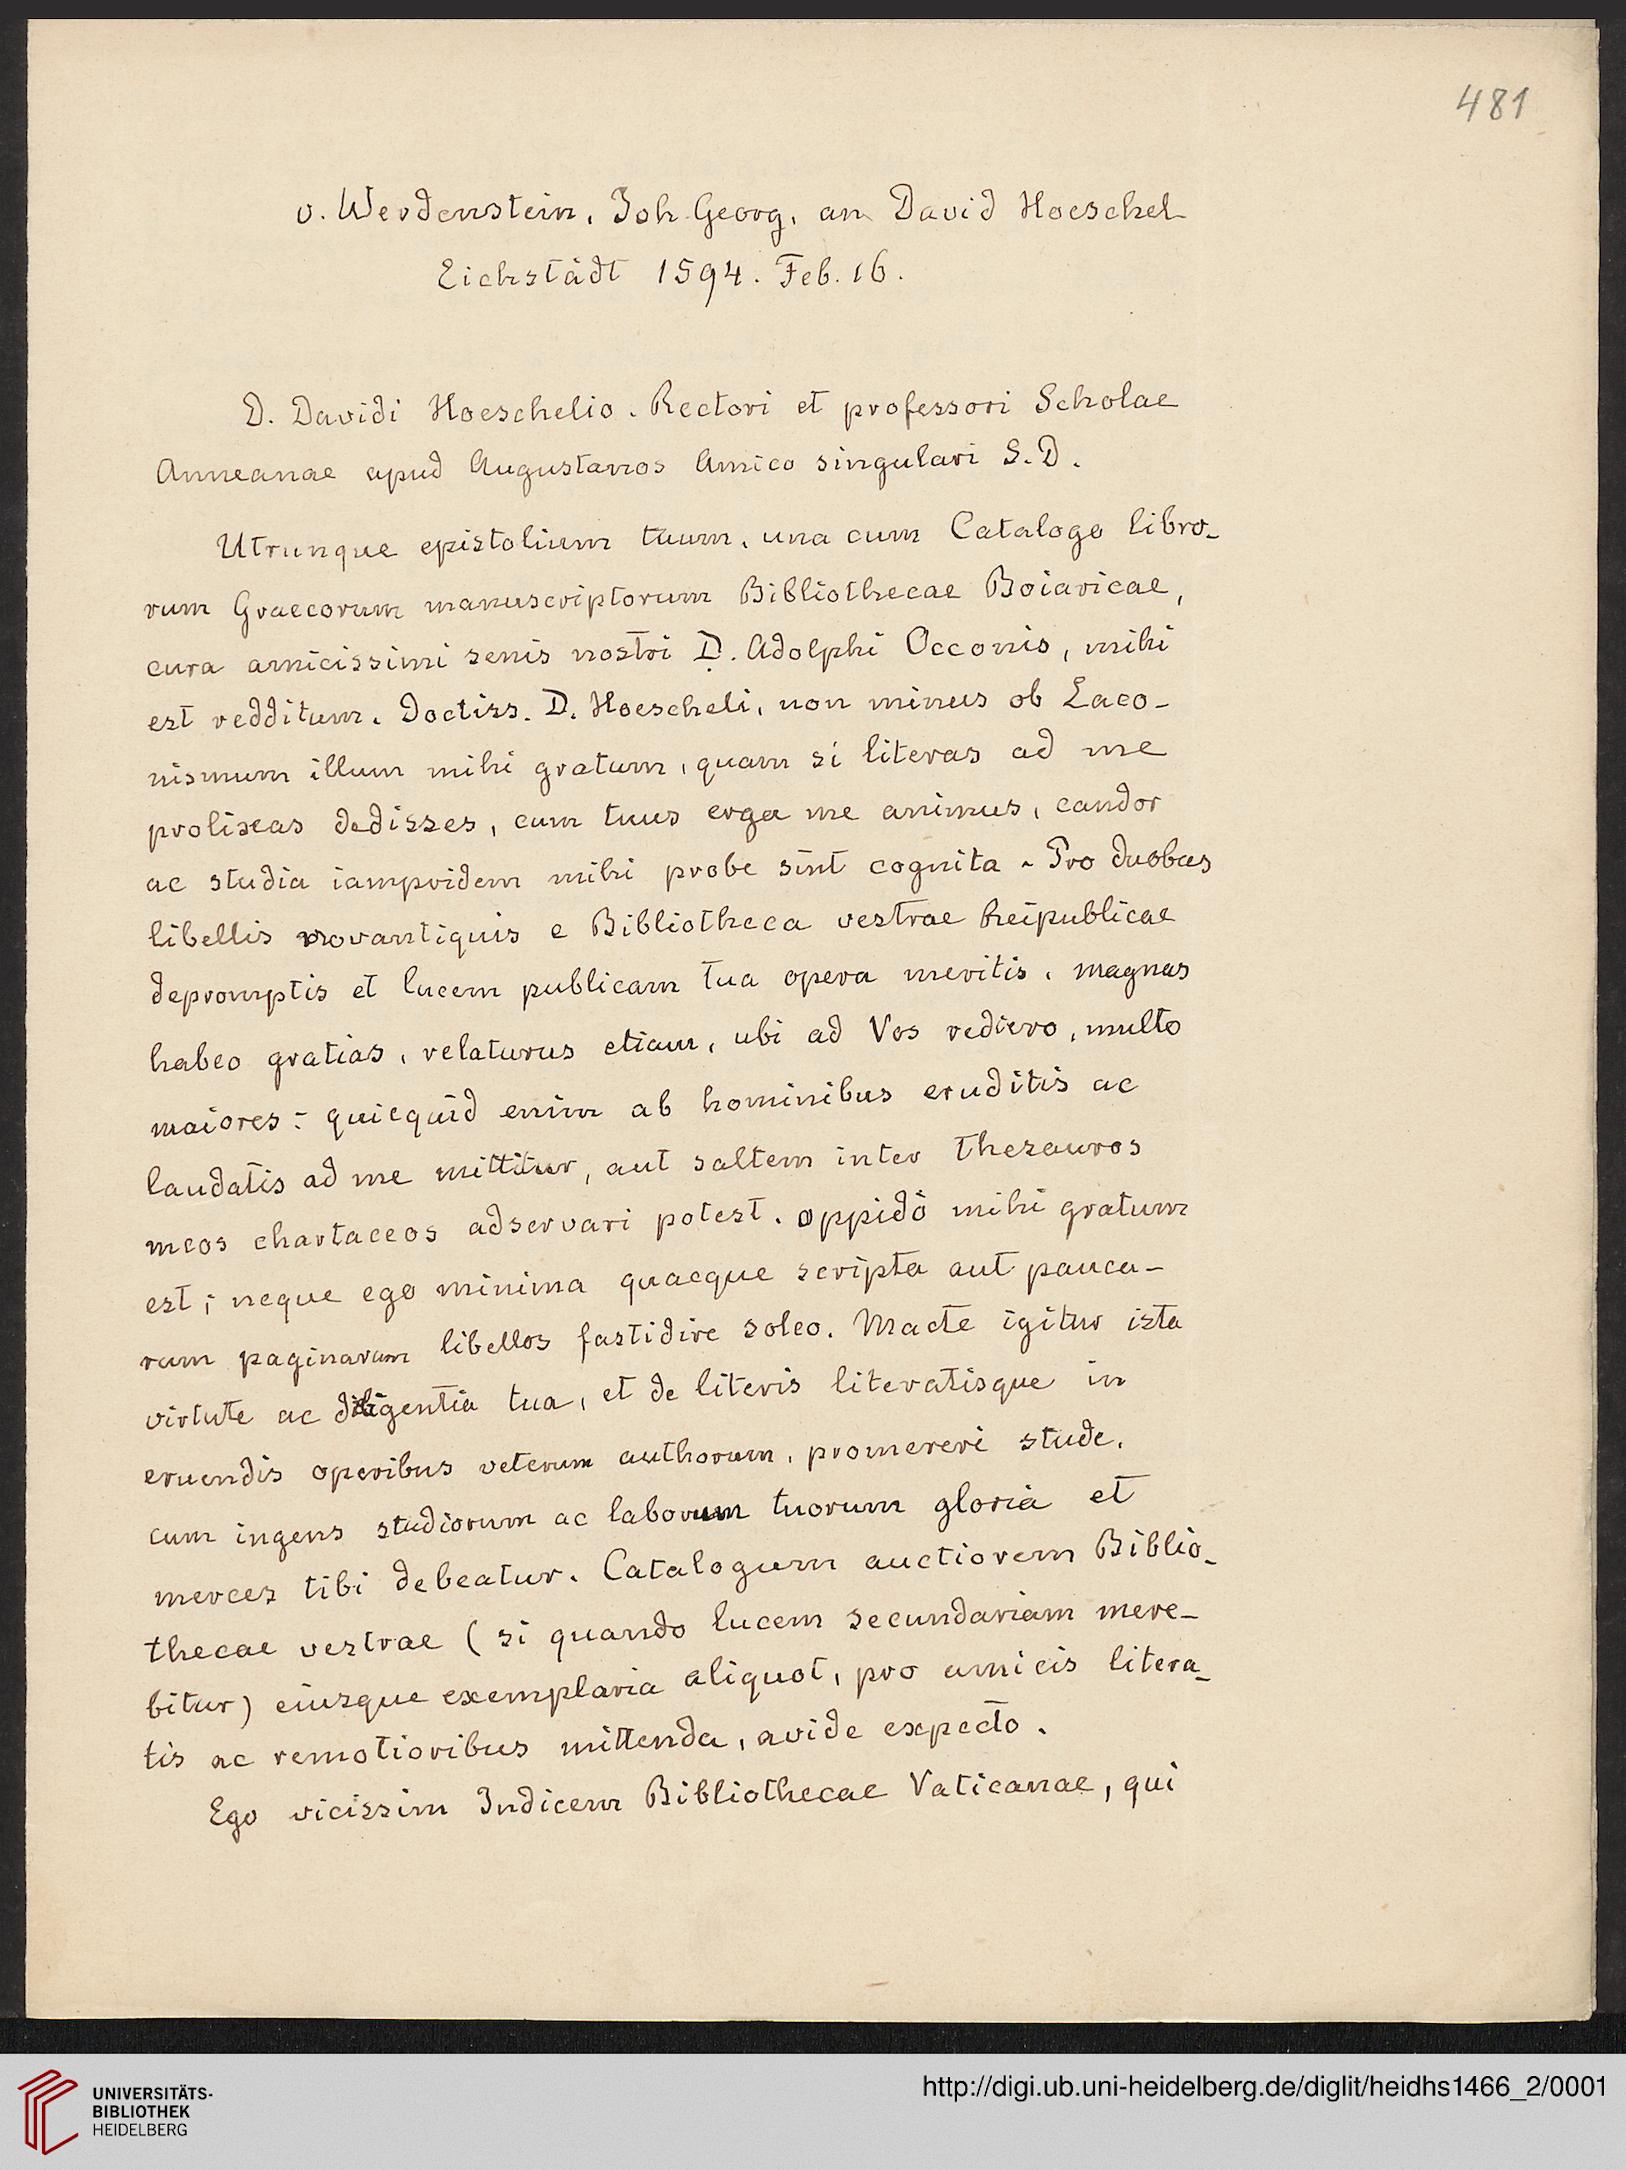 481
v. Werdenstein, Joh. Georg, an David Hoeschel
Eichstädt 1594. Feb. 16.
D. Davidi Hoeschelio. Rectori et professori Scholae
Anneanae apud Augustanos Amico singulari S. D.
Utrunque epistolium tuum, una cum Catalogo libro-
rum Graecorum manuscriptorum Bibliothecae Boiaricae,
cura amicissimi senis nostri D. Adolphi Occonis, mihi
est redditum. Doctiss. D. Hoescheli, non minus ob Laco-
nismum illum mihi gratum, quam si literas ad me
prolixas dedisses, cum tuus erga me animus, candor
ac studia iampridem mihi probe sint cognita. Pro duobus
libellis novantiquis e Bibliotheca vestrae Reipublicae
depromptis et lucem publicam tua opera meritis, magnas
habeo gratias, relaturus etiam, ubi ad Vos rediero, multo
maiores: quicquid enim ab hominibus eruditis ac
laudatis ad me mittitur, aut saltem inter Thesauros
meos chartaceos adservari potest, oppidò mihi gratum
est; neque ego minima quaeque scripta aut pauca-
rum paginarum libellos fastidire soleo. Macte igitur ista
virtute ac diligentia tua, et de literis literatisque in
eruendis operibus veterum authorum, promereri stude,
cum ingens studiorum ac laborum tuorum gloria et
merces tibi debeatur. Catalogum auctiorem Biblio-
thecae vestrae (si quando lucem secundariam mere-
bitur) eiusque exemplaria aliquot, pro amicis litera-
tis ac remotioribus mittenda, avide expecto.
Ego vicissim Indicem Bibliothecae Vaticanae, qui
UNIVERSITÄTS-
BIBLIOTHEK
HEIDELBERG
http://digi.ub.uni-heidelberg.de/diglit/heidhs1466_2/0001